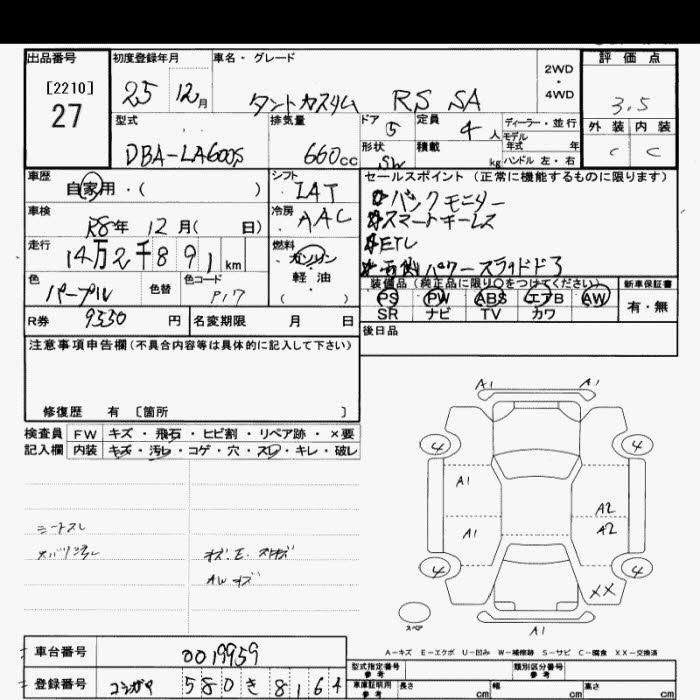 出品番号 初度登録年月 車名・グレード 2WD・4WD 評価点
[2210] 27 25 12月 タントカスタム RS SA 3.5
型式 排気量 ドア 5 定員 4人 ディーラー・並行 外装 内装
DBA-LA600S 660cc 形状 SW 積載 kg モデル年式 年 ハンドル 左・右 C C
車歴 自家用・( ) シフト IAT セールスポイント (正常に機能するものに限ります)
車検 R8年 12月( 日) 冷房 AAC バックモニター
スマートキーレス
走行 14万2千891km 燃料 ガソリン ETC
軽・油 ( ) 両側パワースライドドア
色 パープル 色替 色コード P17 装備品(純正品に限り○をつけてください) 新車保証書
PS PW ABS エアB AW 有・無
SR ナビ TV カワ
R券 9550円 名変期限 月 日 後日品
注意事項申告欄(不具合内容等は具体的に記入して下さい)
修復歴 有 〔箇所 〕
検査員 FW キズ・飛石・ヒビ割・リペア跡・×要
記入欄 内装 キズ・汚レ・コゲ・穴・スレ・キレ・破レ
A1 A1
4 4
A1 A2
A1 A2
4 4
XX
スペア
A1
シートスレ
AWキズ
A-キズ E-エクボ U-凹み W-補修跡 S-サビ C-腐食 XX-交換済
車台番号 0019959
型式指定番号 参考 類別区分番号 参考
登録番号 580 き 8164
車庫証明用 参考 長さ cm 幅 cm 高さ cm